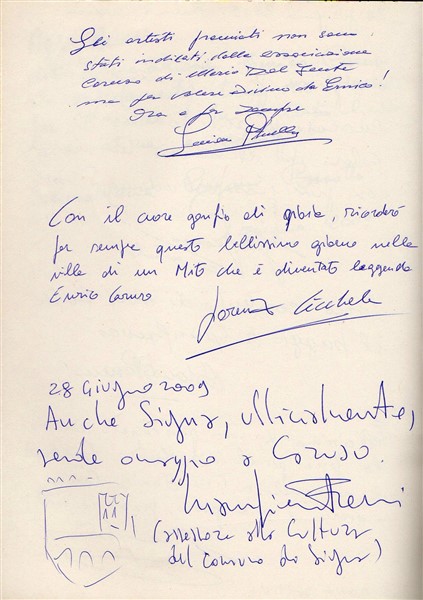 Gli artisti premiati non sono
stati indicati dalla associazione
Caruso di Mario Del Fante
ma per volere Divino da Enrico!
Ora e per sempre
Con il cuore gonfio di gioia, ricorderò
per sempre questo bellissimo giorno nella
villa di un Mito che è diventato leggenda
Enrico Caruso
Lorenzo
28 Giugno 2009
Anche Signa, ufficialmente,
rende omaggio a Caruso.
(assessore alla Cultura
del Comune di Signa)